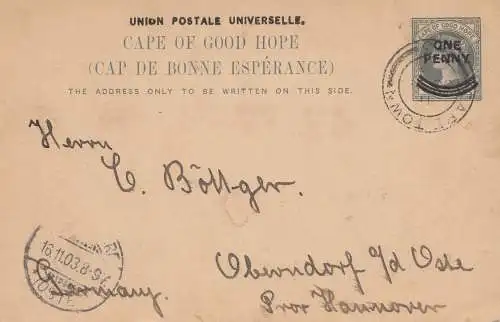 UNION POSTALE UNIVERSELLE.
CAPE OF GOOD HOPE
(CAP DE BONNE ESPÉRANCE)
THE ADDRESS ONLY TO BE WRITTEN ON THIS SIDE.
CAPE OF GOOD HOPE
ONE
PENNY
CAPE TOWN
Herrn
C. Böttger.
Oberndorf a/d Oste
Prov Hannover
Germany.
16.11.03.8-9V.
(OSTE)